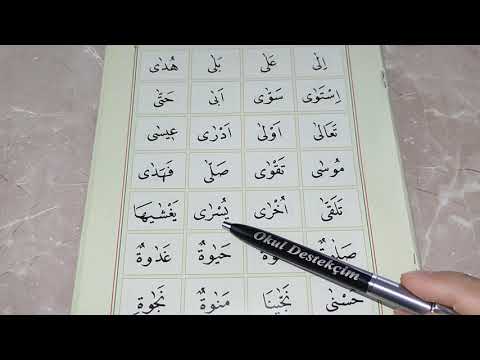 اِلٰى عَلٰى بَلٰى هُدٰى
اِسْتَوٰى سَوّٰى اَبٰى حَتّٰى
تَعَالٰى اَوْلٰى اَدْرٰى عٖيسٰى
مُوسٰى تَقْوٰى صَلّٰى فَهَدٰى
تَلَقّٰى اُخْرٰى يُسْرٰى يَغْشٰيهَا
حَيٰوةٌ غَدٰوةٌ
حُسْنٰى نَجّٰينَا مَنٰوةٌ نَجْوٰةٍ
Okul Destekçim